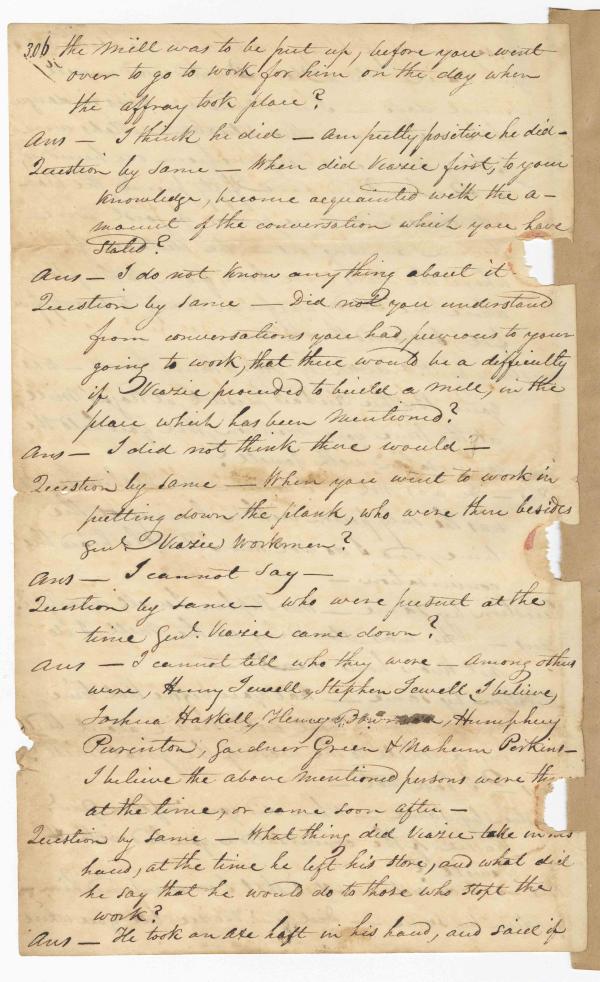 306 the Mill was to be put up, before you went
over to go to work for him on the day when
the affray took place?
Ans — I think he did — Am pretty positive he did —
Question by same — When did Veazie first, to your
knowledge, become acquainted with the a-
mount of the conversation which you have
stated?
Ans — I do not know anything about it
Question by same — Did not you understand
from conversations you had, previous to your
going to work, that there would be a difficulty
if Veazie proceeded to build a mill, in the
place which has been mentioned?
Ans — I did not think there would —
Question by same — When you went to work in
putting down the plank, who were there besides
Genl. Veazie workmen?
Ans — I cannot say —
Question by same — who were present at the
time Genl. Veazie came down?
Ans — I cannot tell who they were — Among others
were, Henry Jewell, Stephen Jewell, I believe,
Joshua Haskell, Henry Humphrey
Purinton, Gardner Green & Nahum Perkins —
I believe the above mentioned persons were
at the time, or came soon after —
Question by same — What thing did Veazie take in his
hand, at the time he left his store, and what did
he say that he would do to those who stopt the
work?
Ans — He took an axe haft in his hand, and said if